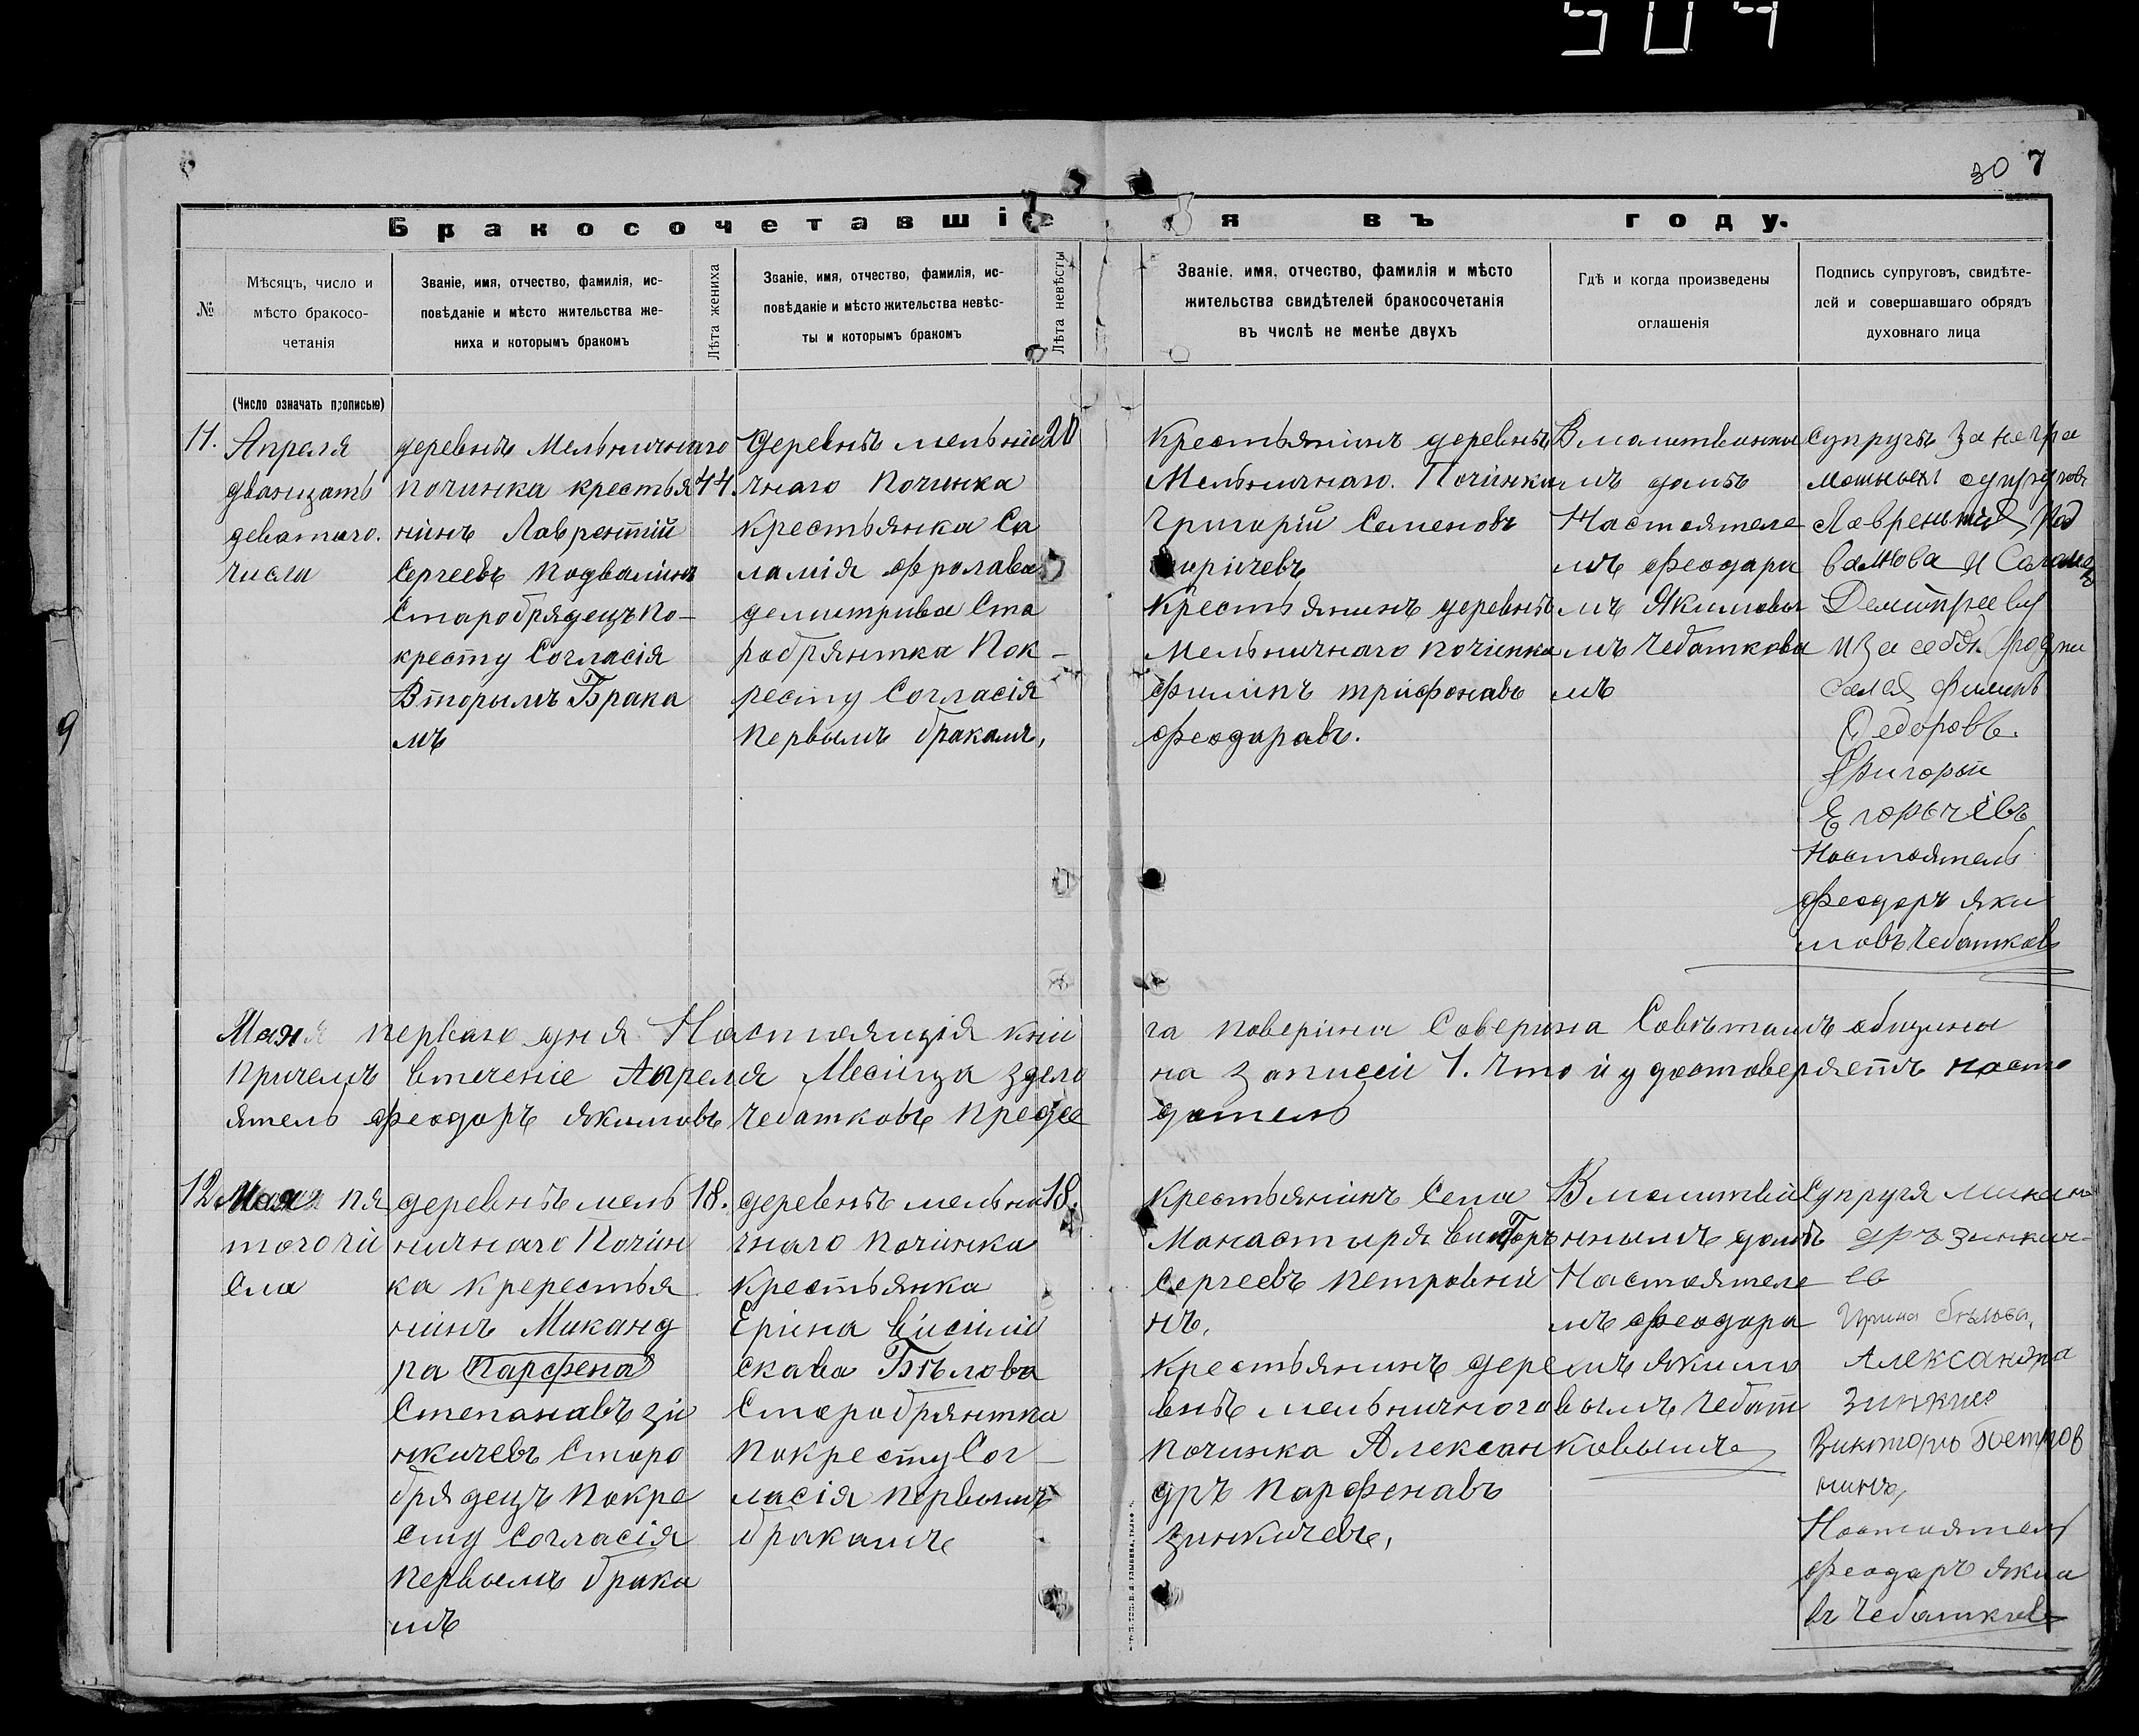 504
30 7
Бракосочетавшіеся въ году.
№
Мѣсяцъ, число и
мѣсто бракосо-
четанія
Званіе, имя, отчество, фамилія, ис-
повѣданіе и мѣсто жительства же-
ниха и которымъ бракомъ
Лѣта жениха
Званіе, имя, отчество, фамилія, ис-
повѣданіе и мѣсто жительства невѣс-
ты и которымъ бракомъ
Лѣта невѣсты
Званіе, имя, отчество, фамилія и мѣсто
жительства свидѣтелей бракосочетанія
въ числѣ не менѣе двухъ
Гдѣ и когда произведены
оглашенія
Подпись супруговъ, свидѣте-
лей и совершавшаго обрядъ
духовнаго лица
(Число означать прописью)
11.
Апреля
дванцать
деватого.
числа
деревнѣ Мельничнаго
починка крестья
нинъ Лаврентій
Сергеевъ Подвалинъ
Старобрядецъ По-
кресту Согласія
Вторымъ Брака
мъ
44.
Деревнѣ мельни
чнаго Починка
крестьянка Са
ламія Фролава
демитрива Ста
робрянтка Пок-
ресту Согласія
первымъ бракамъ,
20
Крестьянинъ деревнѣ
Мельничнаго. Починка
Григорій Семеновъ
Крестьянинъ деревнѣ
Мельничнаго починка
Филипъ трифонавъ
Феодаравъ.
В малитвенна
мъ домѣ
Настоятеле
мъ Феодара
мъ Якимовы
мъ Чебаткова
мъ
Супругъ за негра
мотныхъ супругов
и Салам
Демитреевы
Филипъ
Федоровъ.
Григорѣи
Егорычевъ
Настоятель
Феодаръ Яки
мовъ Чебатковъ
Мая перваго дня Настаящія кни
га поверина Соверина Совѣтамъ общины
Причемъ втеченіе Апреля Месица здело
на записей 1. Что и удостоверяетъ насто
ятель Феодаръ Якимовъ Чебатковъ председатель
12
Мая пя
тогочи
сла
деревнѣ мель
ничнаго Почин
ка кререстья
нинъ Миканд
ра Парфена
Степанавъ зи
нкичевъ Старо
брядецъ Покре
сту Согласія
Первымъ брака
мъ
18.
деревнѣ мельни
чнаго починка
крестьянка
Ерина висіли
скава Бѣлова
Старобрянтка
Покресту Сог-
ласія первымъ
бракамъ
18.
Крестьянинъ Села
Манастыря Викторъ
Сергеевъ петровни
нъ.
крестьянинъ дере
внѣ мельничного
починка Алексан
дръ Парфенавъ
Зинкичевъ,
В малитви
ннымъ домѣ
Настоятеле
мъ Феодара
мъ якимо
вымъ Чебат
ковымъ
Супругя микан
дръ зинкич-
ев
Ирина бѣлова,
Александра
Зинкич
Викторъ Петров
нинъ,
Настоятель
Феодаръ Яким
въ Чебатковъ
9